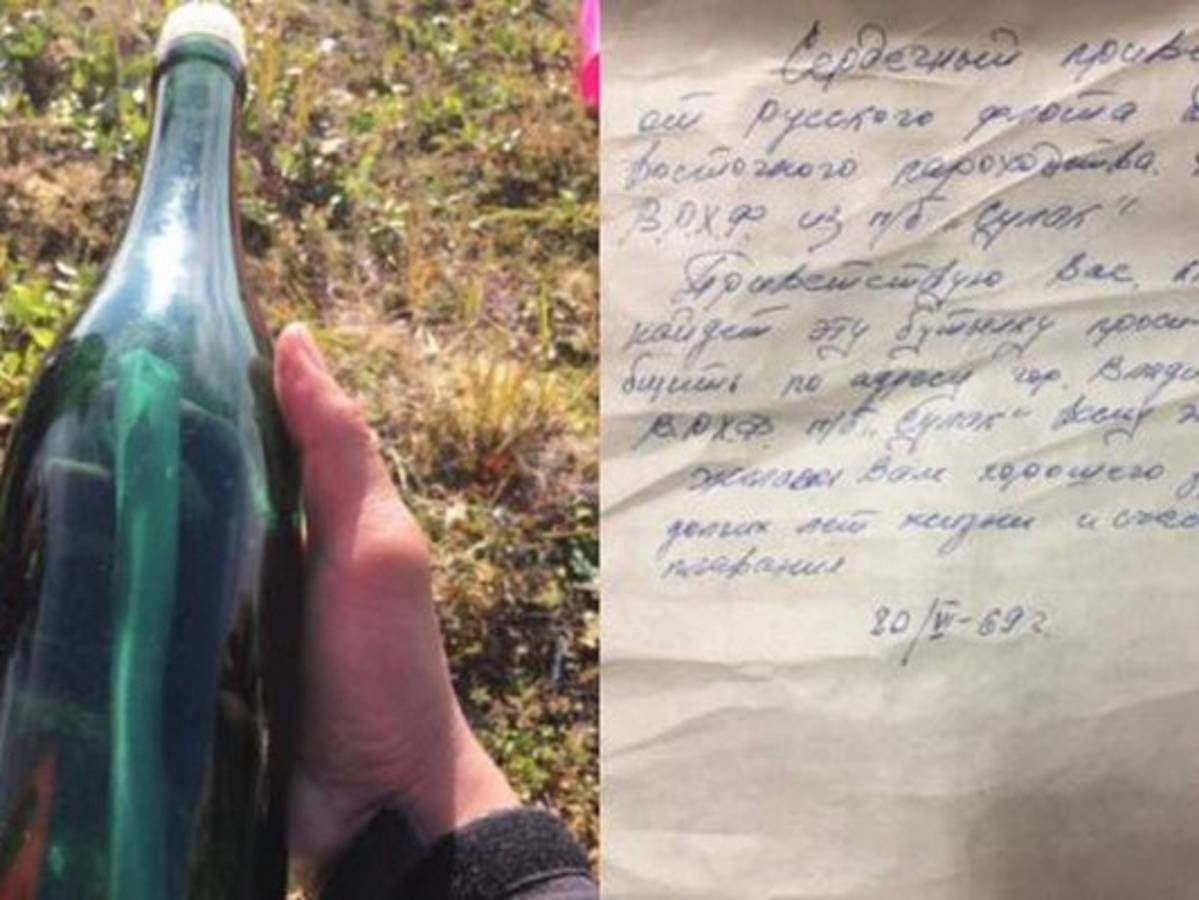 Сердечный приве
от Русского флота
восточного пароходства.
В.Р.Х.Ф. из п/б „Сулак"
Приветствую Вас,
найдет эту бутылку прос
бщить по адресу гор. Влади
В.Р.Х.Ф. п/б „Сулак" всему
желаем Вам хорошего
долгих лет жизни и счас
плавания
20/VI-69 г.